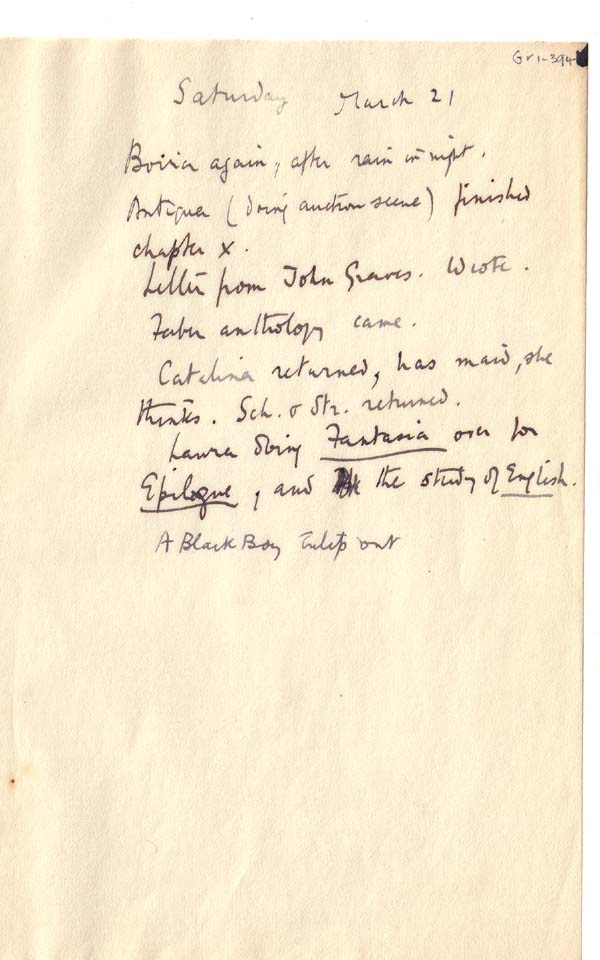 Gr1-394
Saturday March 21
again, after rain in night.
Antigua (doing auction scene) finished
chapter X.
Letter from John Graves. Wrote.
Faber anthology came.
Catalina returned, has maid, she
thinks. Sch. & Str. returned.
Laura doing Fantasia over for
Epilogue, and the study of English.
A Black Boy tulip out